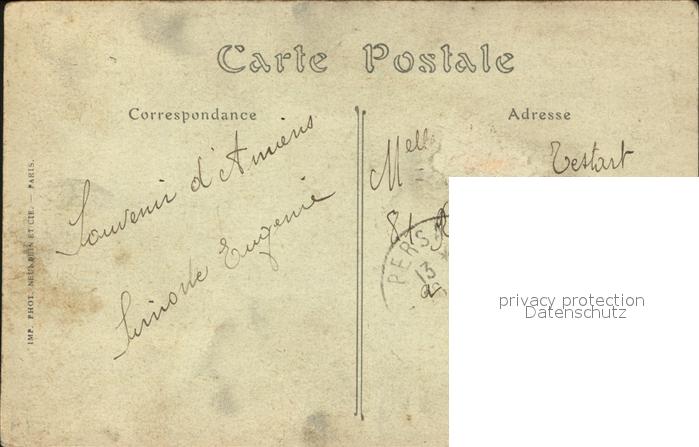 Carte Postale
Correspondance
Adresse
Souvenir d'Amiens
Simone Eugenie
Melle Testart
81
PERSA
13
a
privacy protection
Datenschutz
IMP. PHOT. NEURDEIN ET CIE. — PARIS.